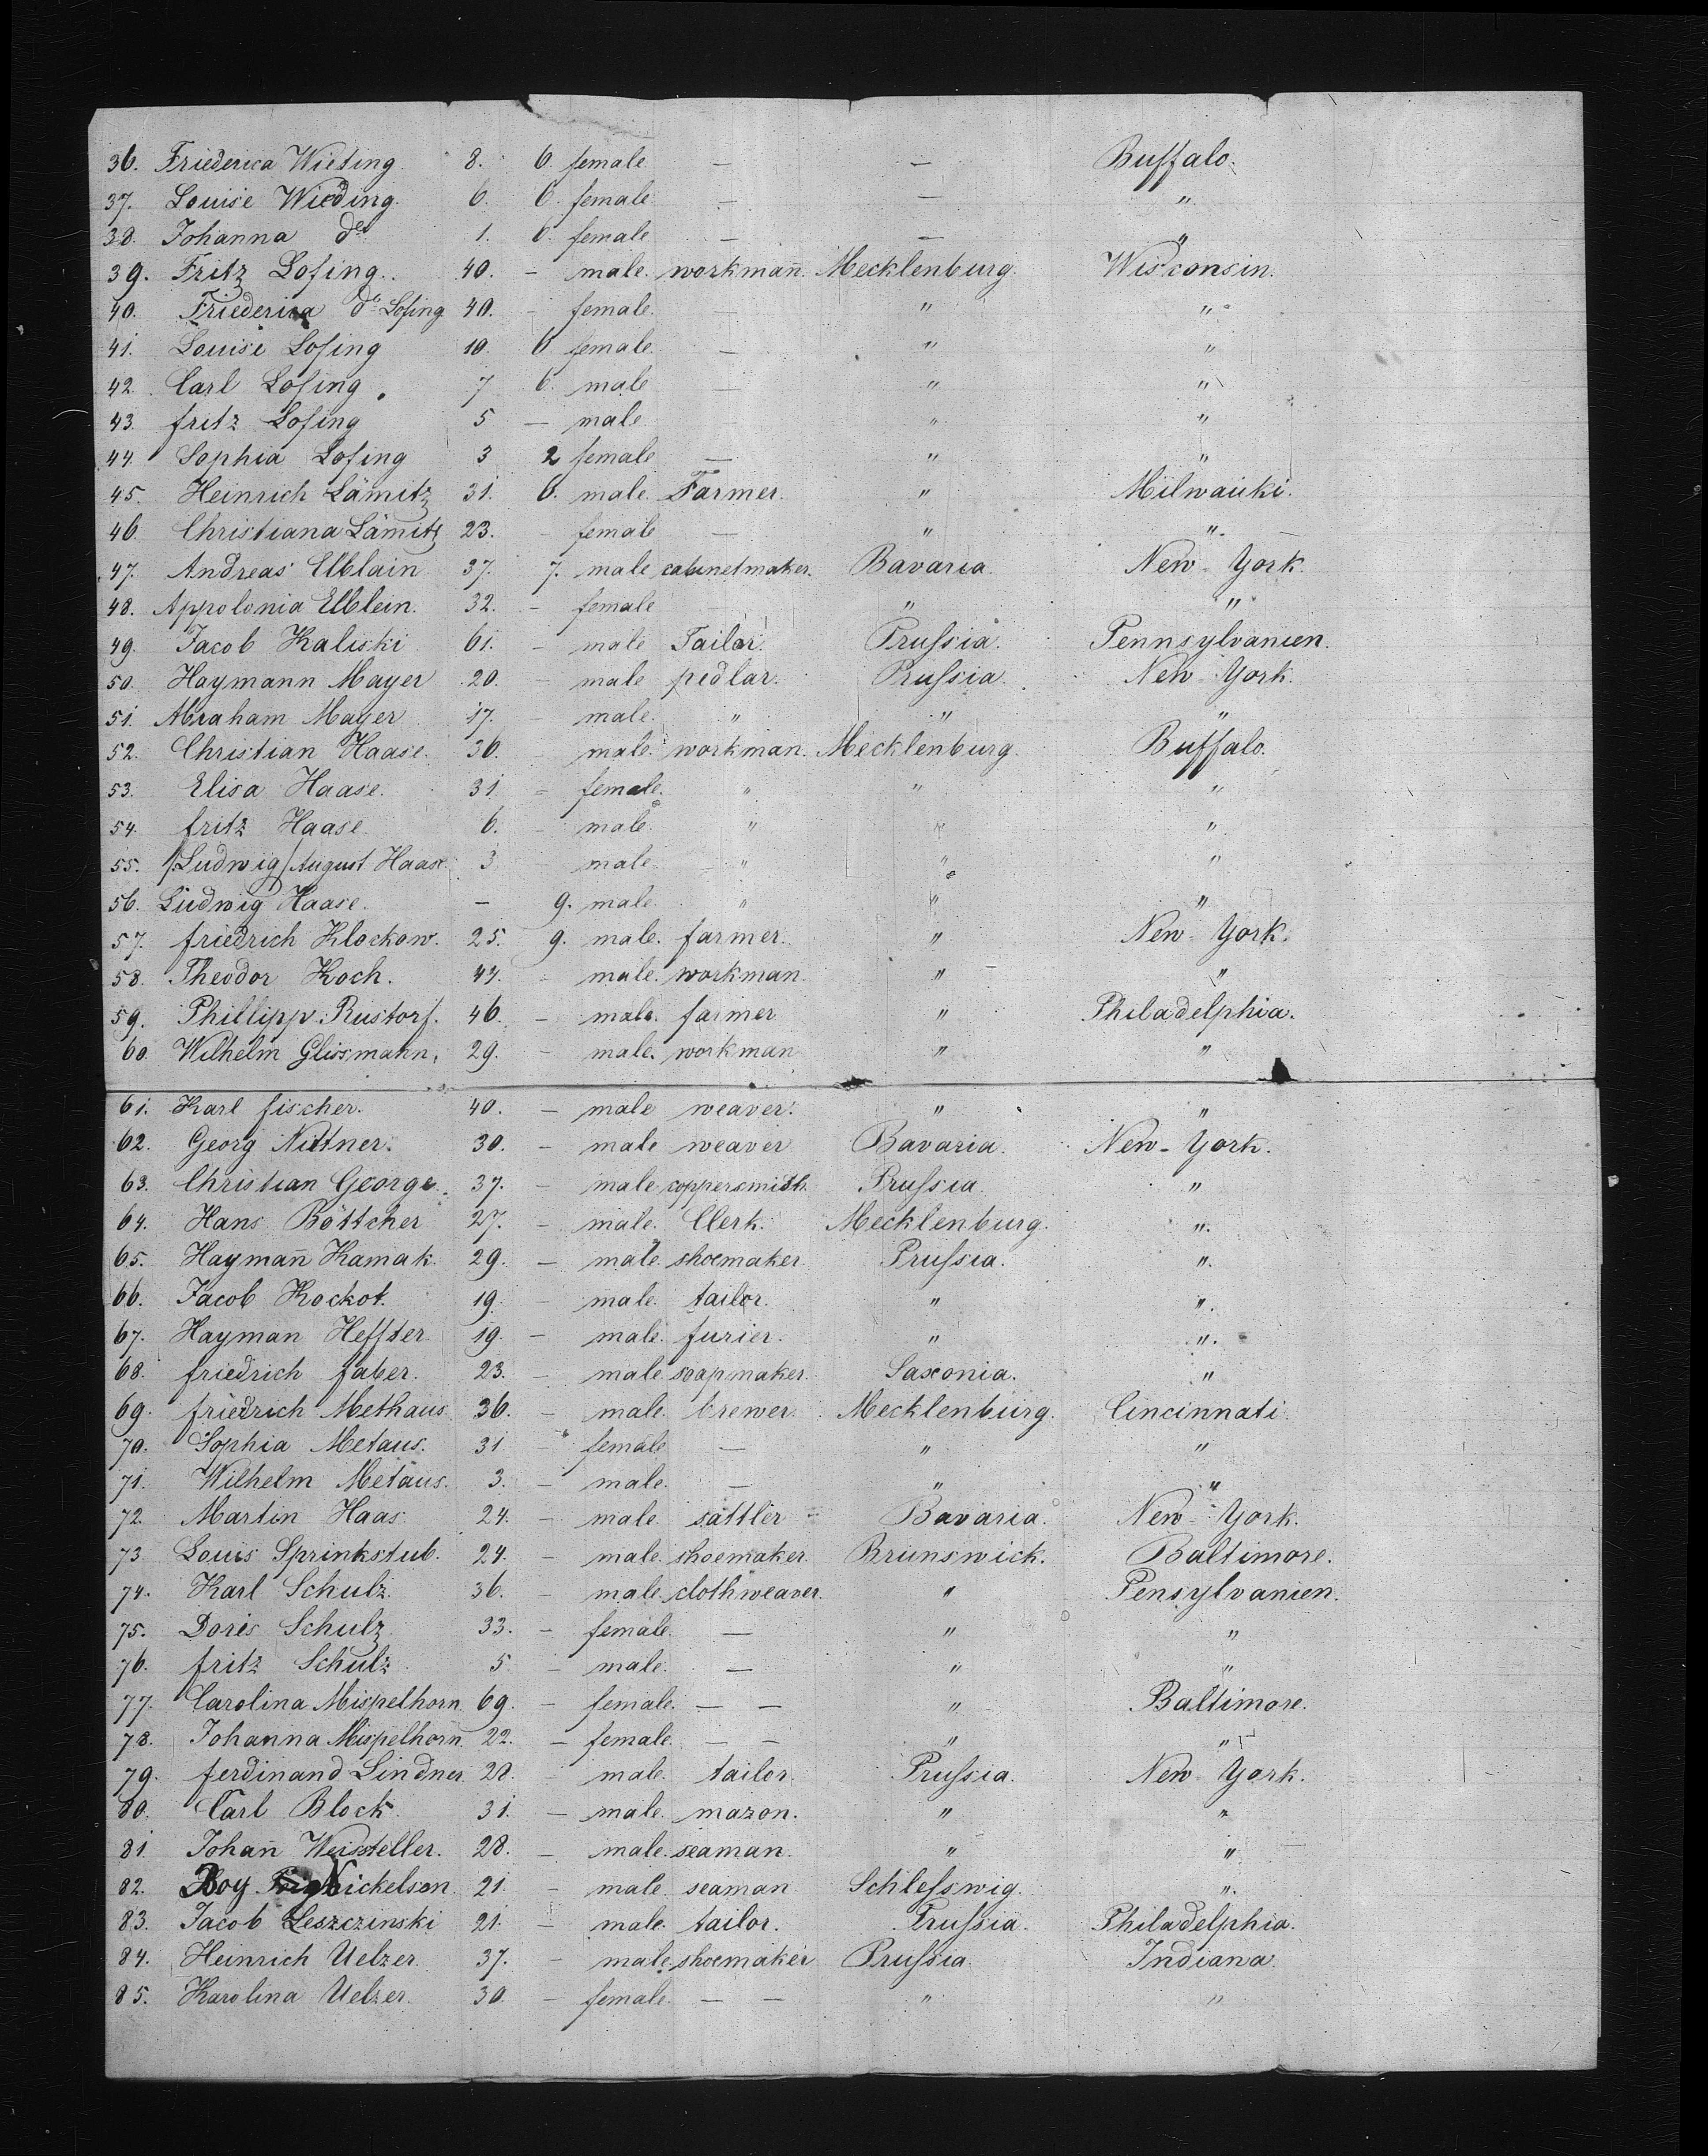 36. Friederica Wieting. 8. 6. female — — Buffalo.
37. Louise Wieding. 6. 6. female — — "
38. Johanna do 1. 6. female — — "
39. Fritz Losing. 40. — male. workmañ. Mecklenburg. Wisconsin.
40. Friederica do Losing 40. — female. — " "
41. Louise Losing 10. 6. female. — " "
42. Carl Losing. 7 6. male — " "
43. fritz Losing 5 — male " "
44. Sophia Losing 3 2 female — " "
45. Heinrich Lämitz 31. 6. male. Farmer. " Milwauki.
46. Christiana Lämitz 23. — female — " "
47. Andreas Elblain 37. 7. male cabinetmaker. Bavaria. New-York.
48. Appolonia Elblein. 32. — female " "
49. Jacob Kaliski 61. — male Tailor. Prussia. Pennsylvanien.
50. Haymann Mayer 20. — male pedlar. Prussia. New-York.
51. Abraham Mayer 17. — male. " " "
52. Christian Haase. 36. — male. workman. Mecklenburg. Buffalo.
53. Elisa Haase. 31. — female. " " "
54. fritz Haase 6. — male. " " "
55. /Ludwig/ August Haase 3 male " " "
56. Ludwig Haase. — 9. male " " "
57. friedrich Klockow. 25. 9. male. farmer. " New-York.
58. Theodor Koch. 44. — male. workman. " "
59. Phillipp Rustorf. 46. — male. farmer " Philadelphia.
60. Wilhelm Glissmann. 29. — male. workman " "
61. Karl fischer. 40. — male weaver. " "
62. Georg Nittner. 30. — male weaver Bavaria. New-York.
63. Christian George. 37. — male coppersmith. Prussia. "
64. Hans Böttcher 27. — male. Clerk. Mecklenburg. ".
65. Haymañ Kamak. 29. — male. shoemaker Prussia. ".
66. Jacob Kockot. 19. — male. tailor. " ".
67. Hayman Heffter 19. — male. furier. " ".
68. friedrich faber. 23. — male soapmaker. Saxonia. "
69. friedrich Methaus 36. — male. brewer. Mecklenburg. Cincinnati.
70. Sophia Metaus. 31 — female — " "
71. Wilhelm Metaus. 3. — male. — " "
72. Martin Haas 24. — male. sattler — Bavaria. New-York.
73. Louis Sprinkstub. 24. — male. shoemaker. Brunswick. Baltimore.
74. Karl Schulz. 36. — male. clothweaver. " Pensylvanien.
75. Doris Schulz 33. — female. — " "
76. fritz Schulz 5 — male. — " "
77. Carolina Mispelhorn 69. — female. — — " Baltimore.
78. Johanna Mispelhorn. 22. — female. — — " "
79. ferdinand Lindner 20. — male. tailor. Prussia. New-York.
80. Carl Block. 31. — male. mazon. " "
81. Johañ Weissteller. 28. — male. seaman. " "
82. Boy Nickelson. 21. — male. seaman Schlesswig. ".
83. Jacob Leszczinski 21. — male. tailor. Prussia. Philadelphia.
84. Heinrich Uelzer. 37. — male. shoemaker Prussia. Indiana.
85. Karolina Uelzer. 30. — female. — — " "